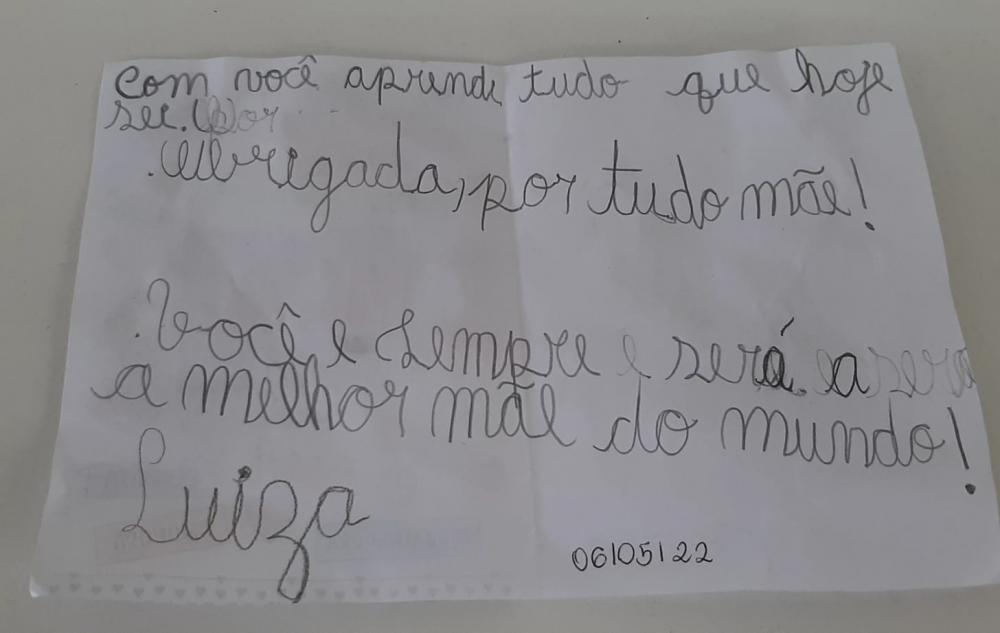 Com você aprende tudo que hoje
sei.
Obrigada, por tudo mãe!
Você, e sempre e será a
a melhor mãe do mundo!
Luiza
06/05/22